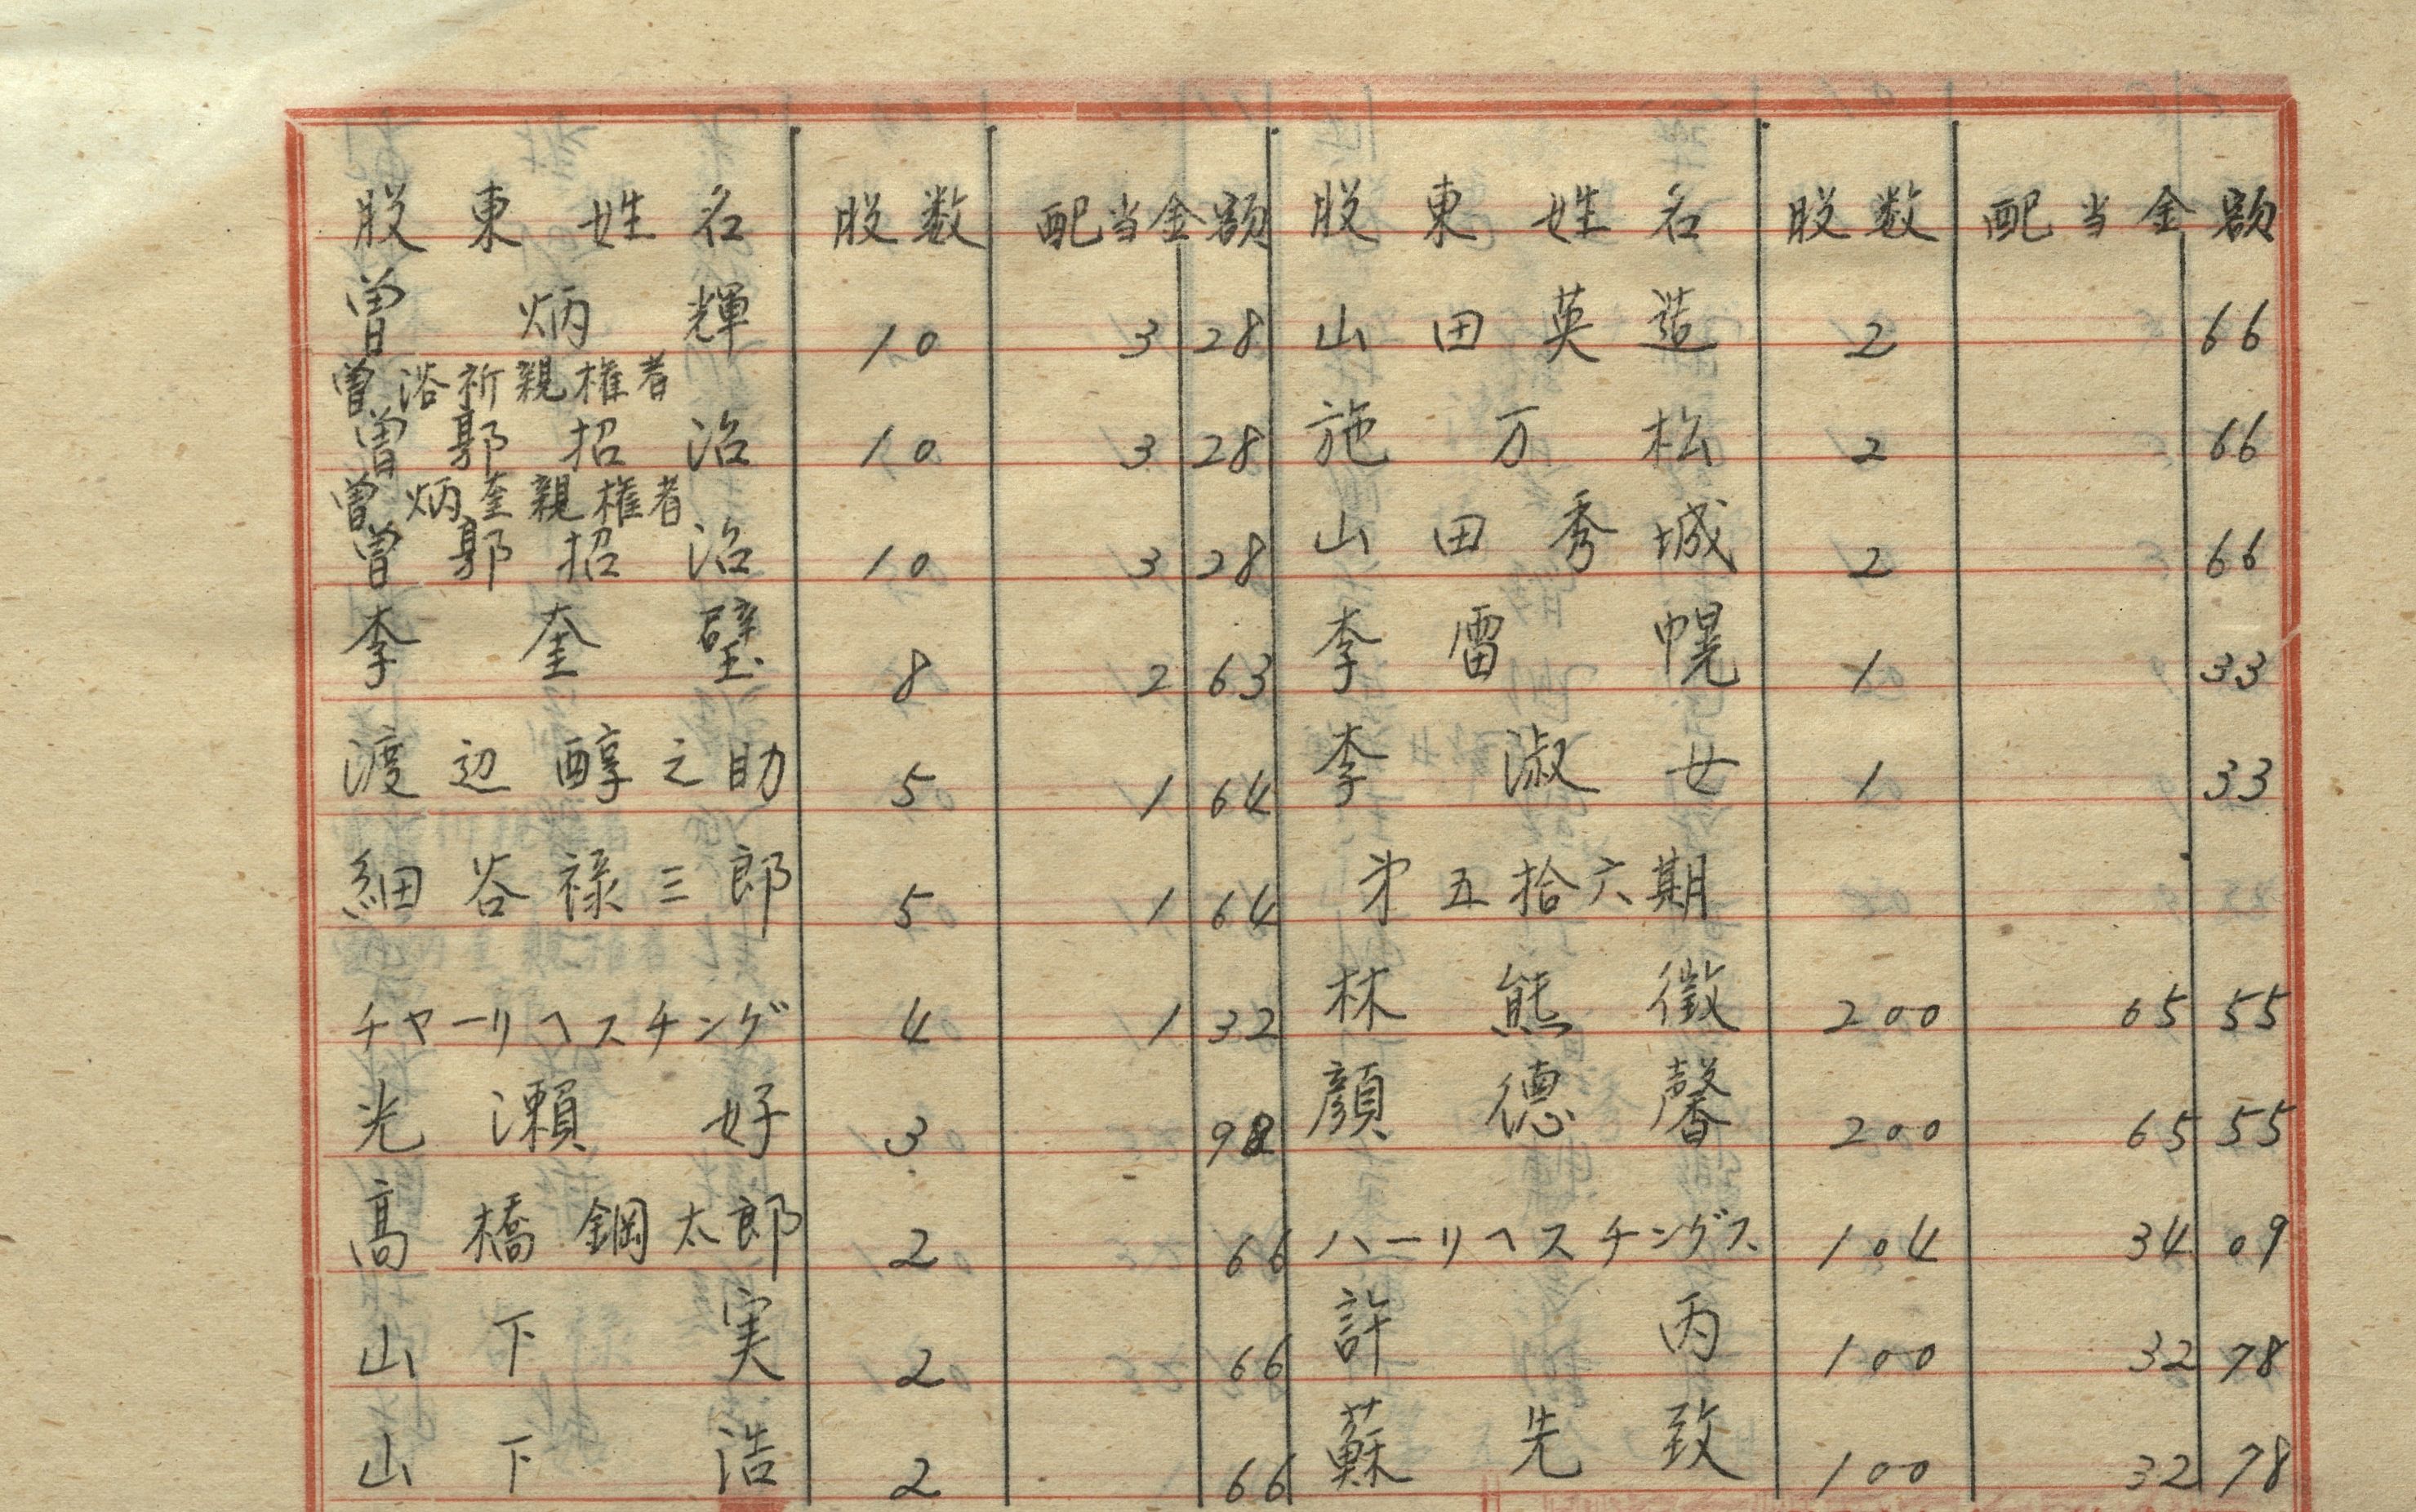 股東姓名 股数 配当金額
曽炳輝 10 3 28
曽浴祈親権者
曽郭招治 10 3 28
曽炳奎親権者
曽郭招治 10 3 28
李奎璧 8 2 63
渡辺醇之助 5 1 64
細谷禄三郎 5 1 64
チャーリヘスチング 4 1 32
光瀬好 3 98
高橋鋼太郎 2 66
山下実 2 66
山下浩 2 66
股東姓名 股数 配当金額
山田英造 2 66
施万松 2 66
山田秀城 2 66
李雷幌 1 33
李淑女 1 33
第五拾六期
林熊徴 200 65 55
顔徳馨 200 65 55
ハーリヘスチングス 104 34 09
許丙 100 32 78
蘇先致 100 32 78